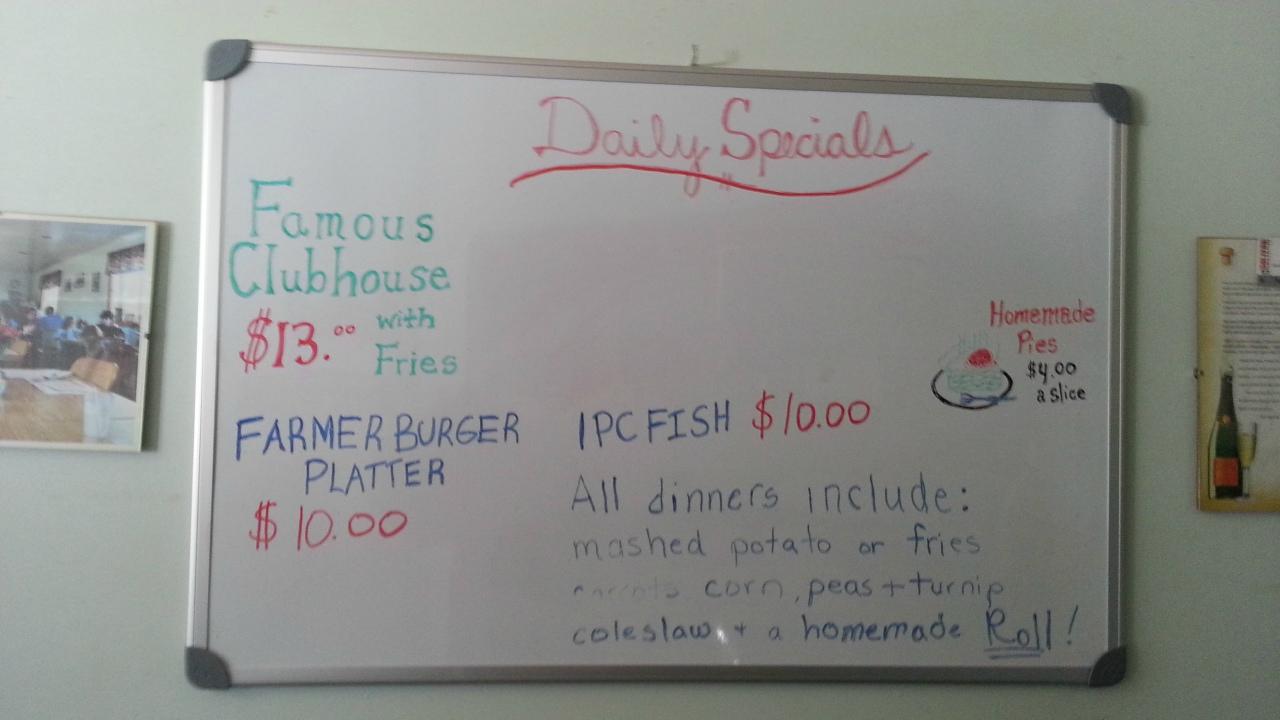 Daily Specials
Famous
Clubhouse
$13.00 with
Fries
Homemade
Pies
$4.00
a slice
FARMER BURGER
PLATTER
$10.00
1PC FISH $10.00
All dinners include:
mashed potato or fries
carrots corn, peas + turnip
coleslaw + a homemade Roll!